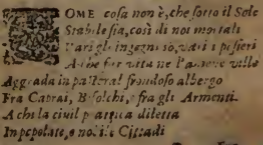 COME cosa non è, che sotto il Sole
Stabile sia, così di noi mortali
Vari gli ingegni so, vari i pēsieri
A che
Aggrada in pastoral frondoso albergo
Fra Caprai, Bifolchi, e fra gli Armenti.
A chi la civil pratica diletta
In popolate, e nobili Cittadi